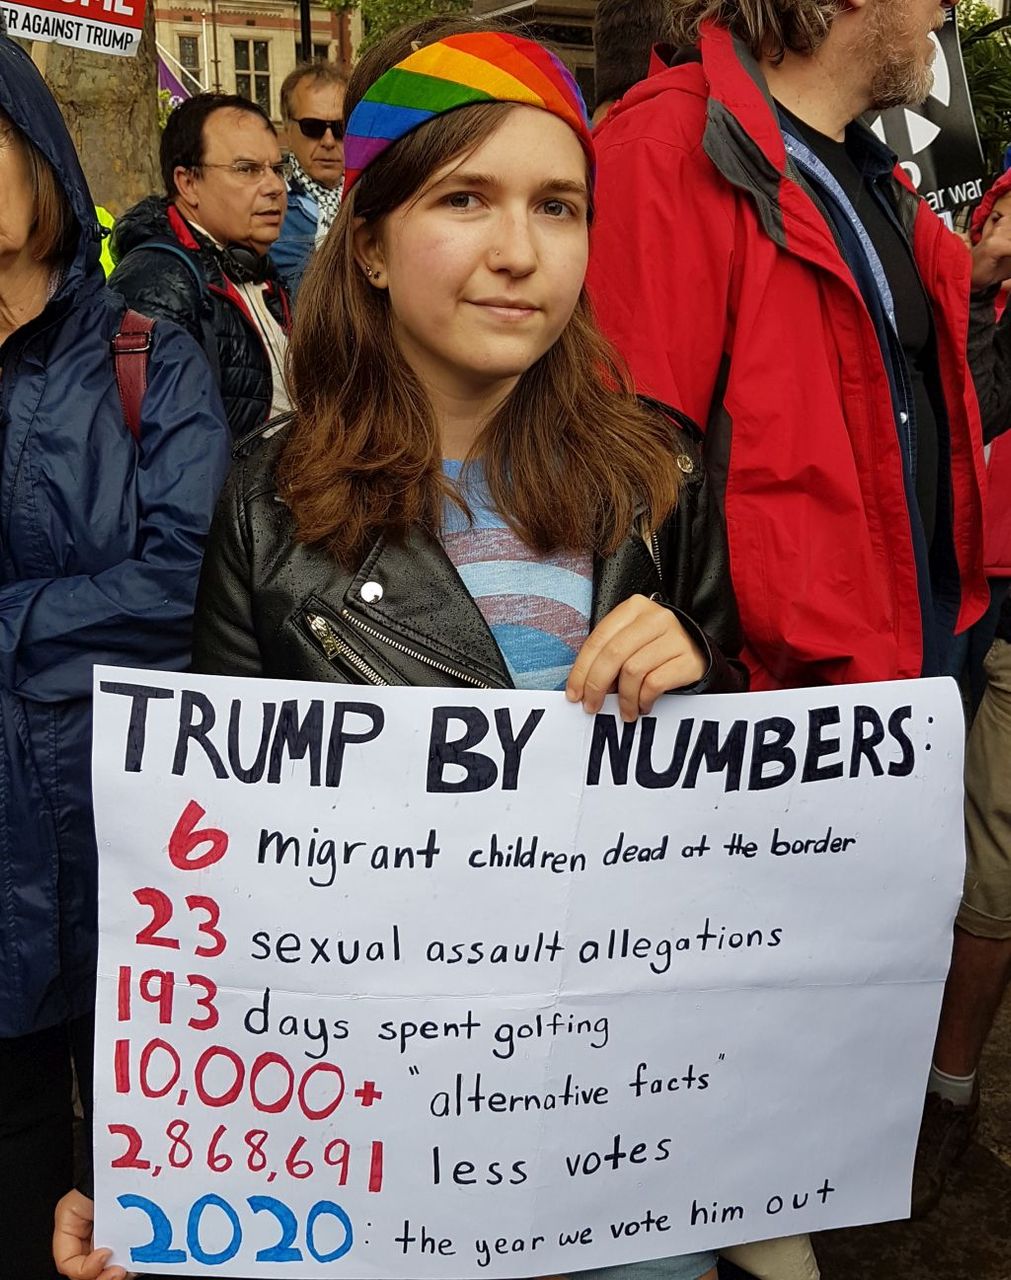 ER AGAINST TRUMP
ar war
TRUMP BY NUMBERS:
6 migrant children dead at the border
23 sexual assault allegations
193 days spent golfing
10,000+ "alternative facts"
2,868,691 less votes
2020: the year we vote him out